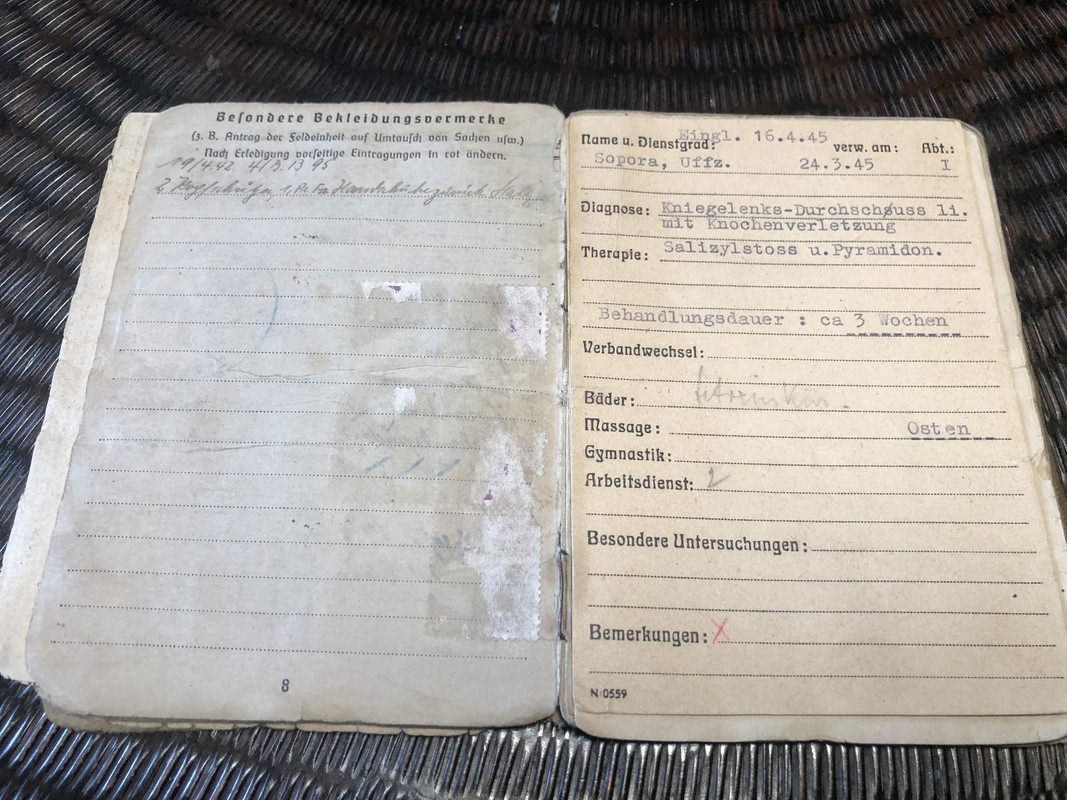 Besondere Bekleidungsvermerke
(z. B. Antrag der Feldeinheit auf Umtausch von Sachen usw.)
Nach Erledigung vorseitige Eintragungen in rot ändern.
19/4.42
8
Eingl. 16.4.45
Name u. Dienstgrad: verw. am: Abt.:
Sopora, Uffz. 24.3.45 I
Diagnose: Kniegelenks-Durchschuss li.
mit Knochenverletzung
Therapie: Salizylstoss u.Pyramidon.
Behandlungsdauer : ca 3 Wochen
Verbandwechsel:
Bäder:
Massage: Osten
Gymnastik:
Arbeitsdienst: 2
Besondere Untersuchungen:
Bemerkungen: X
N/0559